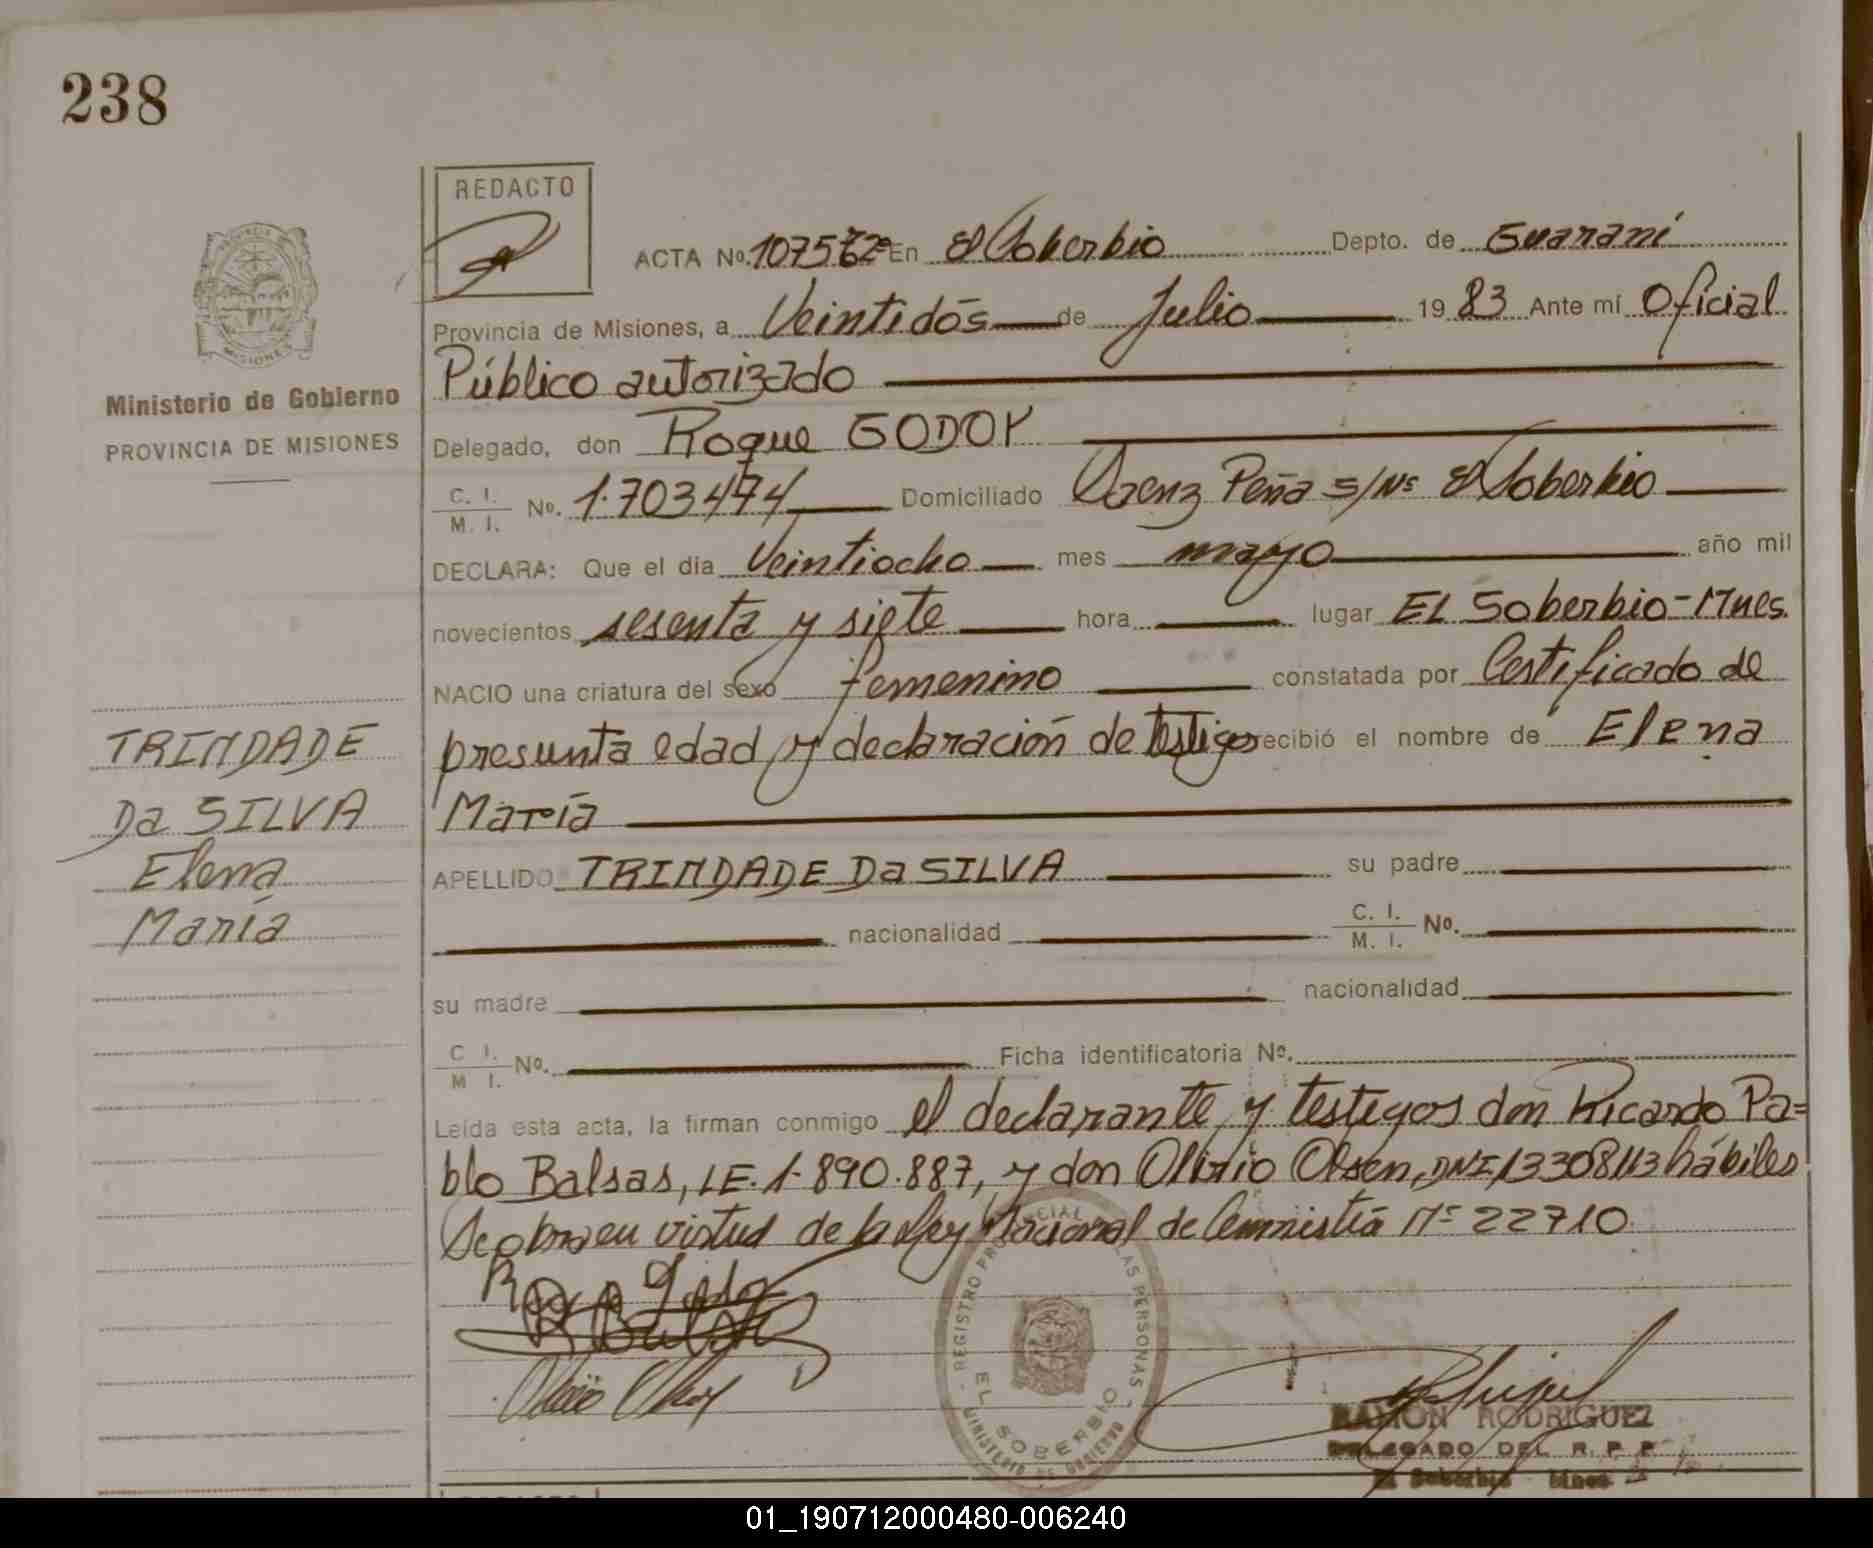 238
REDACTO
ACTA Nº. En El Soberbio Depto. de Guaraní
Provincia de Misiones, a Veintidós de Julio 19 83 Ante mí Oficial
Público autorizado
Delegado, don Roque GODOY
C. I. / M. I. Nº. 1.703474 Domiciliado Saenz Peña s/Nº El Soberbio
DECLARA: Que el dia Veintiocho mes mayo año mil
novecientos sesenta y siete hora lugar EL Soberbio-Mnes.
NACIO una criatura del sexo femenino constatada por Certificado de
presunta edad y declaración de testigos recibió el nombre de Elena
María
APELLIDO TRINDADE Da SILVA su padre
nacionalidad C. I. / M. I. Nº.
su madre nacionalidad
C. I. / M. I. Nº. Ficha identificatoria Nº.
Leida esta acta, la firman conmigo el declarante y testigos don Ricardo Pa=
blo Balsas, LE. 1.890.887, y don Olirio Olsen, DNI 13308113 hábiles
Se obra en virtud de la Ley Nacional de Amnistía Nº 22710
PROVINCIA DE MISIONES
Ministerio de Gobierno
PROVINCIA DE MISIONES
TRINDADE
Da SILVA
Elena
María
REGISTRO PROVINCIAL DE LAS PERSONAS
EL SOBERBIO
MINISTERIO DE GOBIERNO
RAMON RODRIGUEZ
DELEGADO DEL R. P. P.
El Soberbio Mnes
01_190712000480-006240